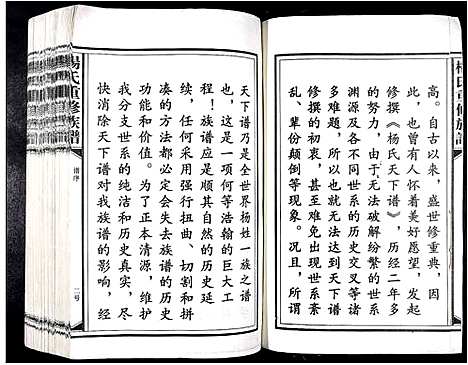 楊氏重修族譜
高。自古以来，盛世修重典，因
此，也曾有人怀着美好愿望，发起
修撰《杨氏天下谱》，历经二年多
的努力。由于无法破解纷繁的世系
渊源及各不同世系的历史交叉等诸
多难题，所以也就无法达到天下谱
修撰的初衷，甚至难免出现世系紊
乱、辈份颠倒等现象。况且，所谓
天下谱乃是全世界杨姓一族之谱
也，这是一项何等浩翰的巨大工
程！族谱应是顺其自然的历史延
续，任何采用强行扭曲、切割和拼
凑的方法都必定会失去族谱的历史
功能和价值。为了正本清源，维护
我分支世系的纯洁和历史真实，尽
快消除天下谱对我族谱的影响，经
楊氏重修族譜
谱序
二号